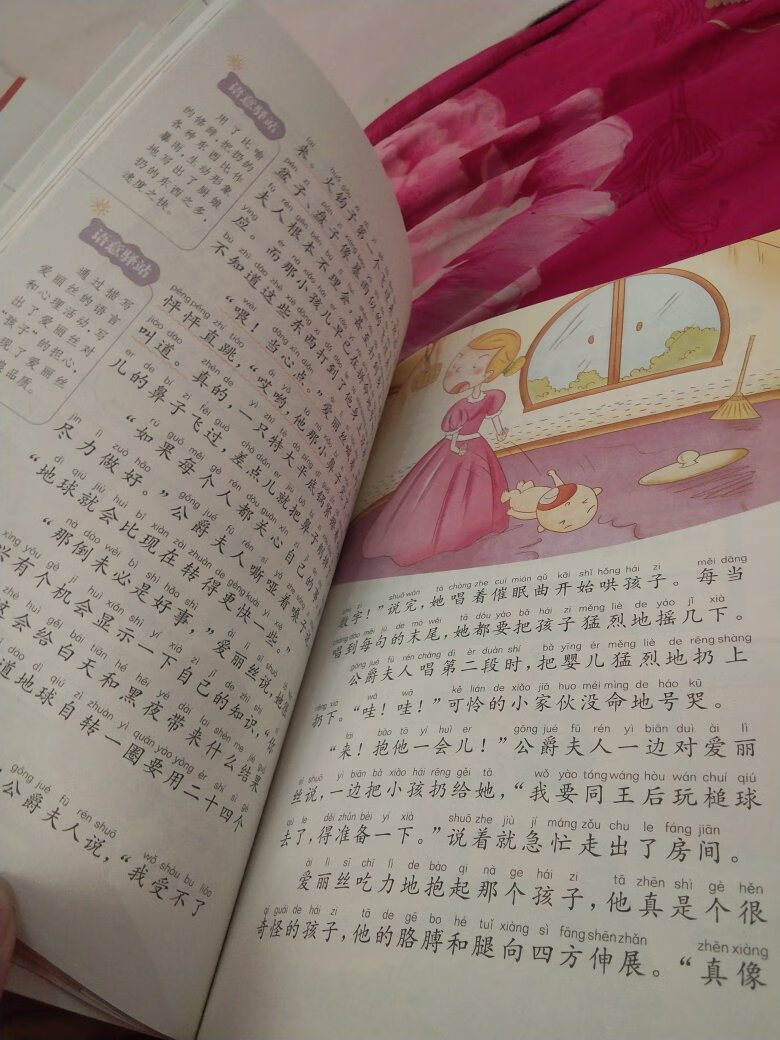 语意驿站
用了比喻
的修辞,把扔的
各种东西比作
暴雨,生动形象
地写出了厨娘
扔的东西之多,
速度之快。
语意驿站
通过描写
爱丽丝的语言
和心理活动,写
出了爱丽丝对
“孩子”的担心,
现了爱丽丝
良品质。
来。火钩子第一个飞过来
盆子、盘子像暴雨似的
夫人根本不理会,甚至打到
应。而那小孩儿早已在拼命
不知道这些东西打到了他身上
“喂!当心点。”爱丽丝喊着
怦怦直跳,“哎哟,他那小鼻子
叫道。真的,一只特大平底锅紧挨
儿的鼻子飞过,差点儿就把鼻子削掉
“如果每个人都关心自己的事
尽力做好。”公爵夫人嘶哑着嗓子说
“地球就会比现在转得更快一些。”
“那倒未必是好事,”爱丽丝说,她很
兴有个机会显示一下自己的知识,“你
这会给白天和黑夜带来什么结果
道地球自转一圈要用二十四个
公爵夫人说,“我受不了
数字!”说完,她唱着催眠曲开始哄孩子。每当
唱到每句的末尾,她都要把孩子猛烈地摇几下。
公爵夫人唱第二段时,把婴儿猛烈地扔上
扔下。“哇!哇!”可怜的小家伙没命地号哭。
“来!抱他一会儿!”公爵夫人一边对爱丽
丝说,一边把小孩扔给她,“我要同王后玩槌球
去了,得准备一下。”说着就急忙走出了房间。
爱丽丝吃力地抱起那个孩子,他真是个很
奇怪的孩子,他的胳膊和腿向四方伸展。“真像